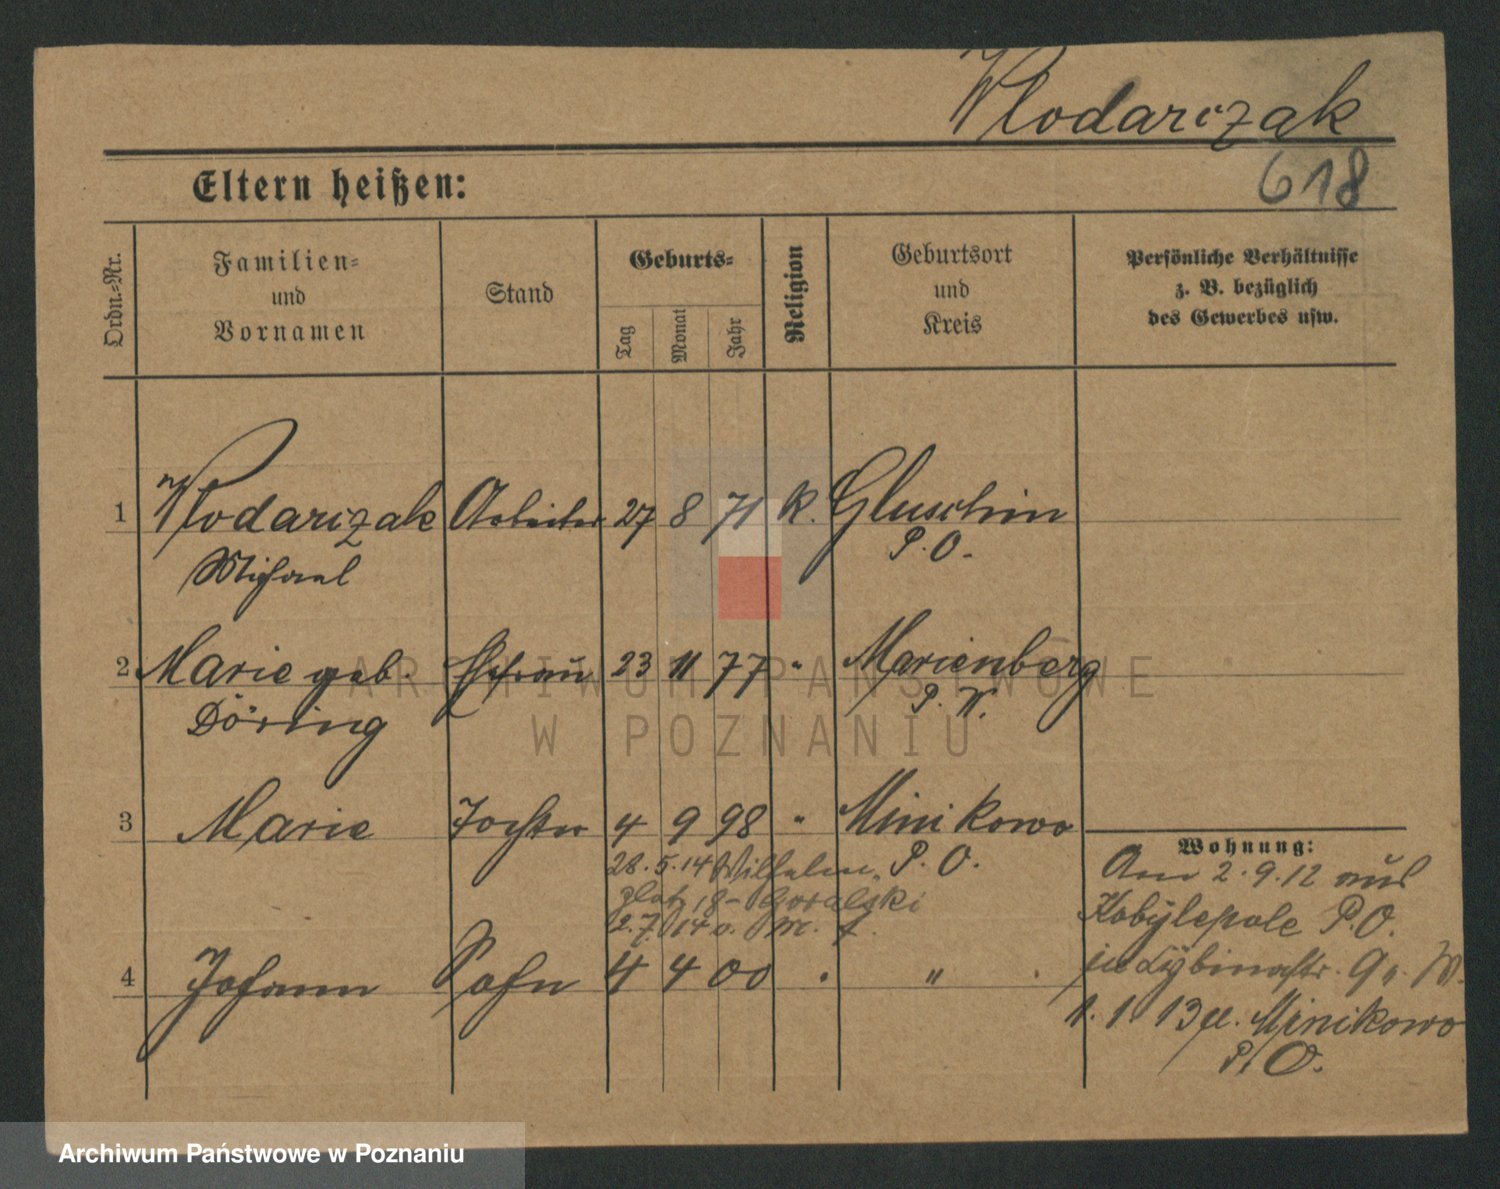 Wlodarczak
618
Eltern heißen:
Ordn.-Nr.
Familien-
und
Vornamen
Stand
Geburts-
Tag
Monat
Jahr
Religion
Geburtsort
und
Kreis
Persönliche Verhältnisse
z. B. bezüglich
des Gewerbes usw.
1 Wlodarczak Arbeiter 27 8 71 k. Gluschin
Michael P. O.
2 Marie geb. Ehefrau 23 11 77 " Marienberg
Döring P. W.
3 Marie Tochter 4 9 98 " Minikowo
P. O.
28.5.14 Wilhelm
platz 18 - Goralski
2.7.14
4 Johann Sohn 4 4 00 " "
Wohnung:
Am 2.9.12 aus
Kobylepole P. O.
Cybinastr. 9
1.1.13 Minikowo
P. O.
ARCHIWUM PAŃSTWOWE
W POZNANIU
Archiwum Państwowe w Poznaniu